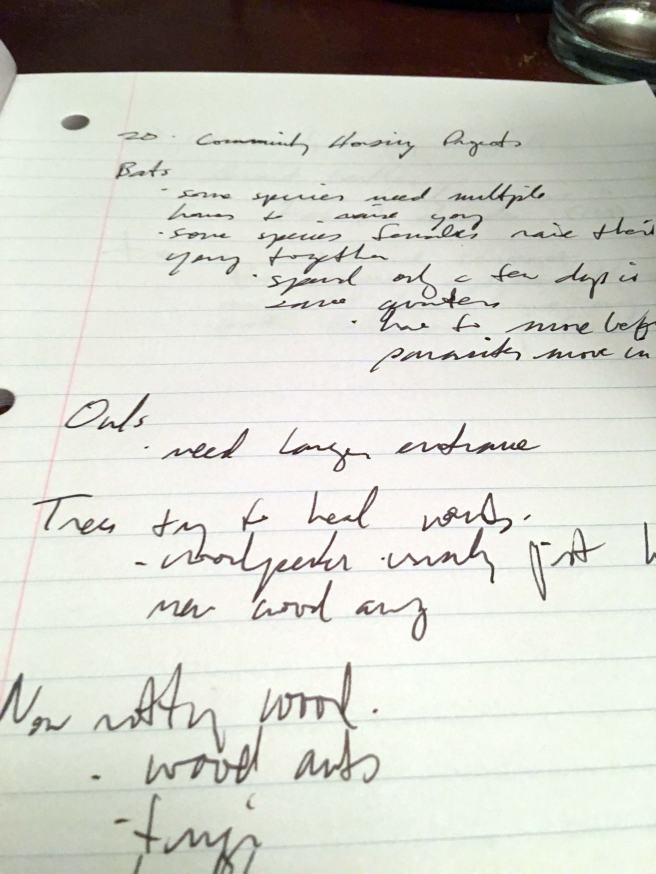 20. Community Housing Projects
Bats
· some species need multiple
homes to raise young
· some species females raise their
young together
· spend only a few days in
same quarters
· have to move bef
parasites move in
Owls
· need larger entrance
Trees try to heal
- woodpecker usually just
new wood away
Now rotting wood.
· wood ants
- fungi